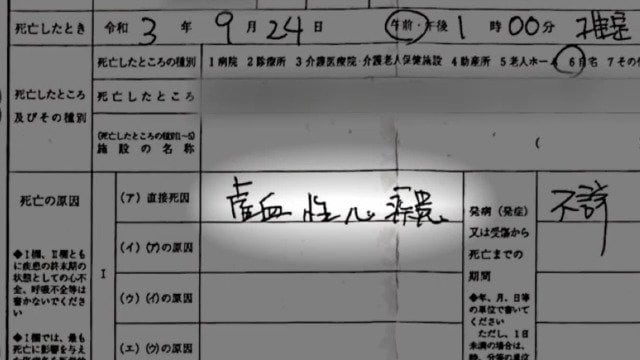 死亡したとき 令和 3 年 9 月 24 日 午前・午後 1 時 00 分 推定
死亡したところ及びその種別
死亡したところの種別 1 病院 2 診療所 3 介護医療院・介護老人保健施設 4 助産所 5 老人ホーム 6 自宅 7 その
死亡したところ
(死亡したところの種別1~5)
施設の名称
(
死亡の原因
◆Ⅰ欄、Ⅱ欄ともに疾患の終末期の状態としての心不全、呼吸不全等は書かないでください
◆Ⅰ欄では、最も死亡に影響を与え
Ⅰ
(ア) 直接死因 虚血性心疾患
(イ) (ア)の原因
(ウ) (イ)の原因
(エ) (ウ)の原因
発病(発症)又は受傷から死亡までの期間
不詳
◆年、月、日等の単位で書いてください
ただし、1日未満の場合は、